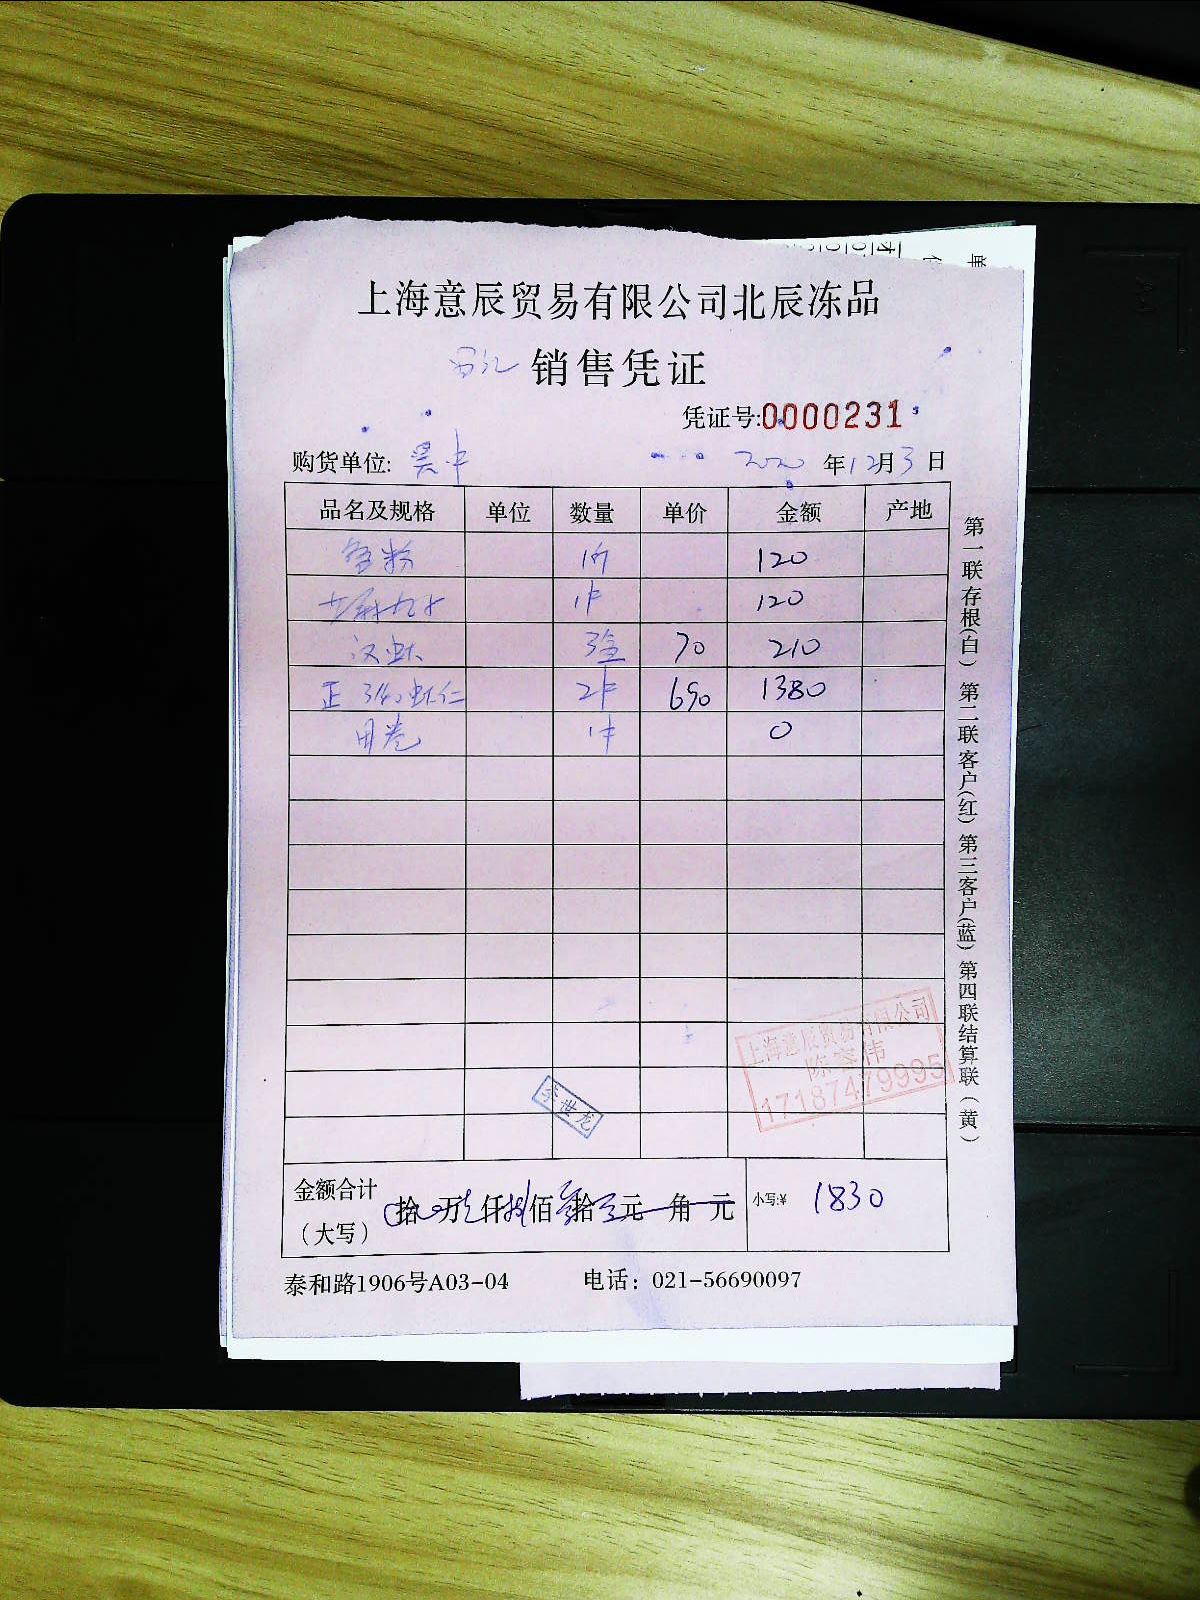 上海意辰贸易有限公司北辰冻品
销售凭证
凭证号:0000231
购货单位: 2020年12月3日
品名及规格 单位 数量 单价 金额 产地
鱼粉 120
120
汉虾 3盒 70 210
正 31/40虾仁 2件 690 1380
甲卷 1件 0
第一联存根(白) 第二联客户(红) 第三客户(蓝) 第四联结算联(黄)
上海意辰贸易有限公司
陈容伟
17187479995
李世龙
金额合计(大写) 拾 万 仟捌佰 拾 元 角 元 小写:¥ 1830
泰和路1906号A03-04 电话: 021-56690097